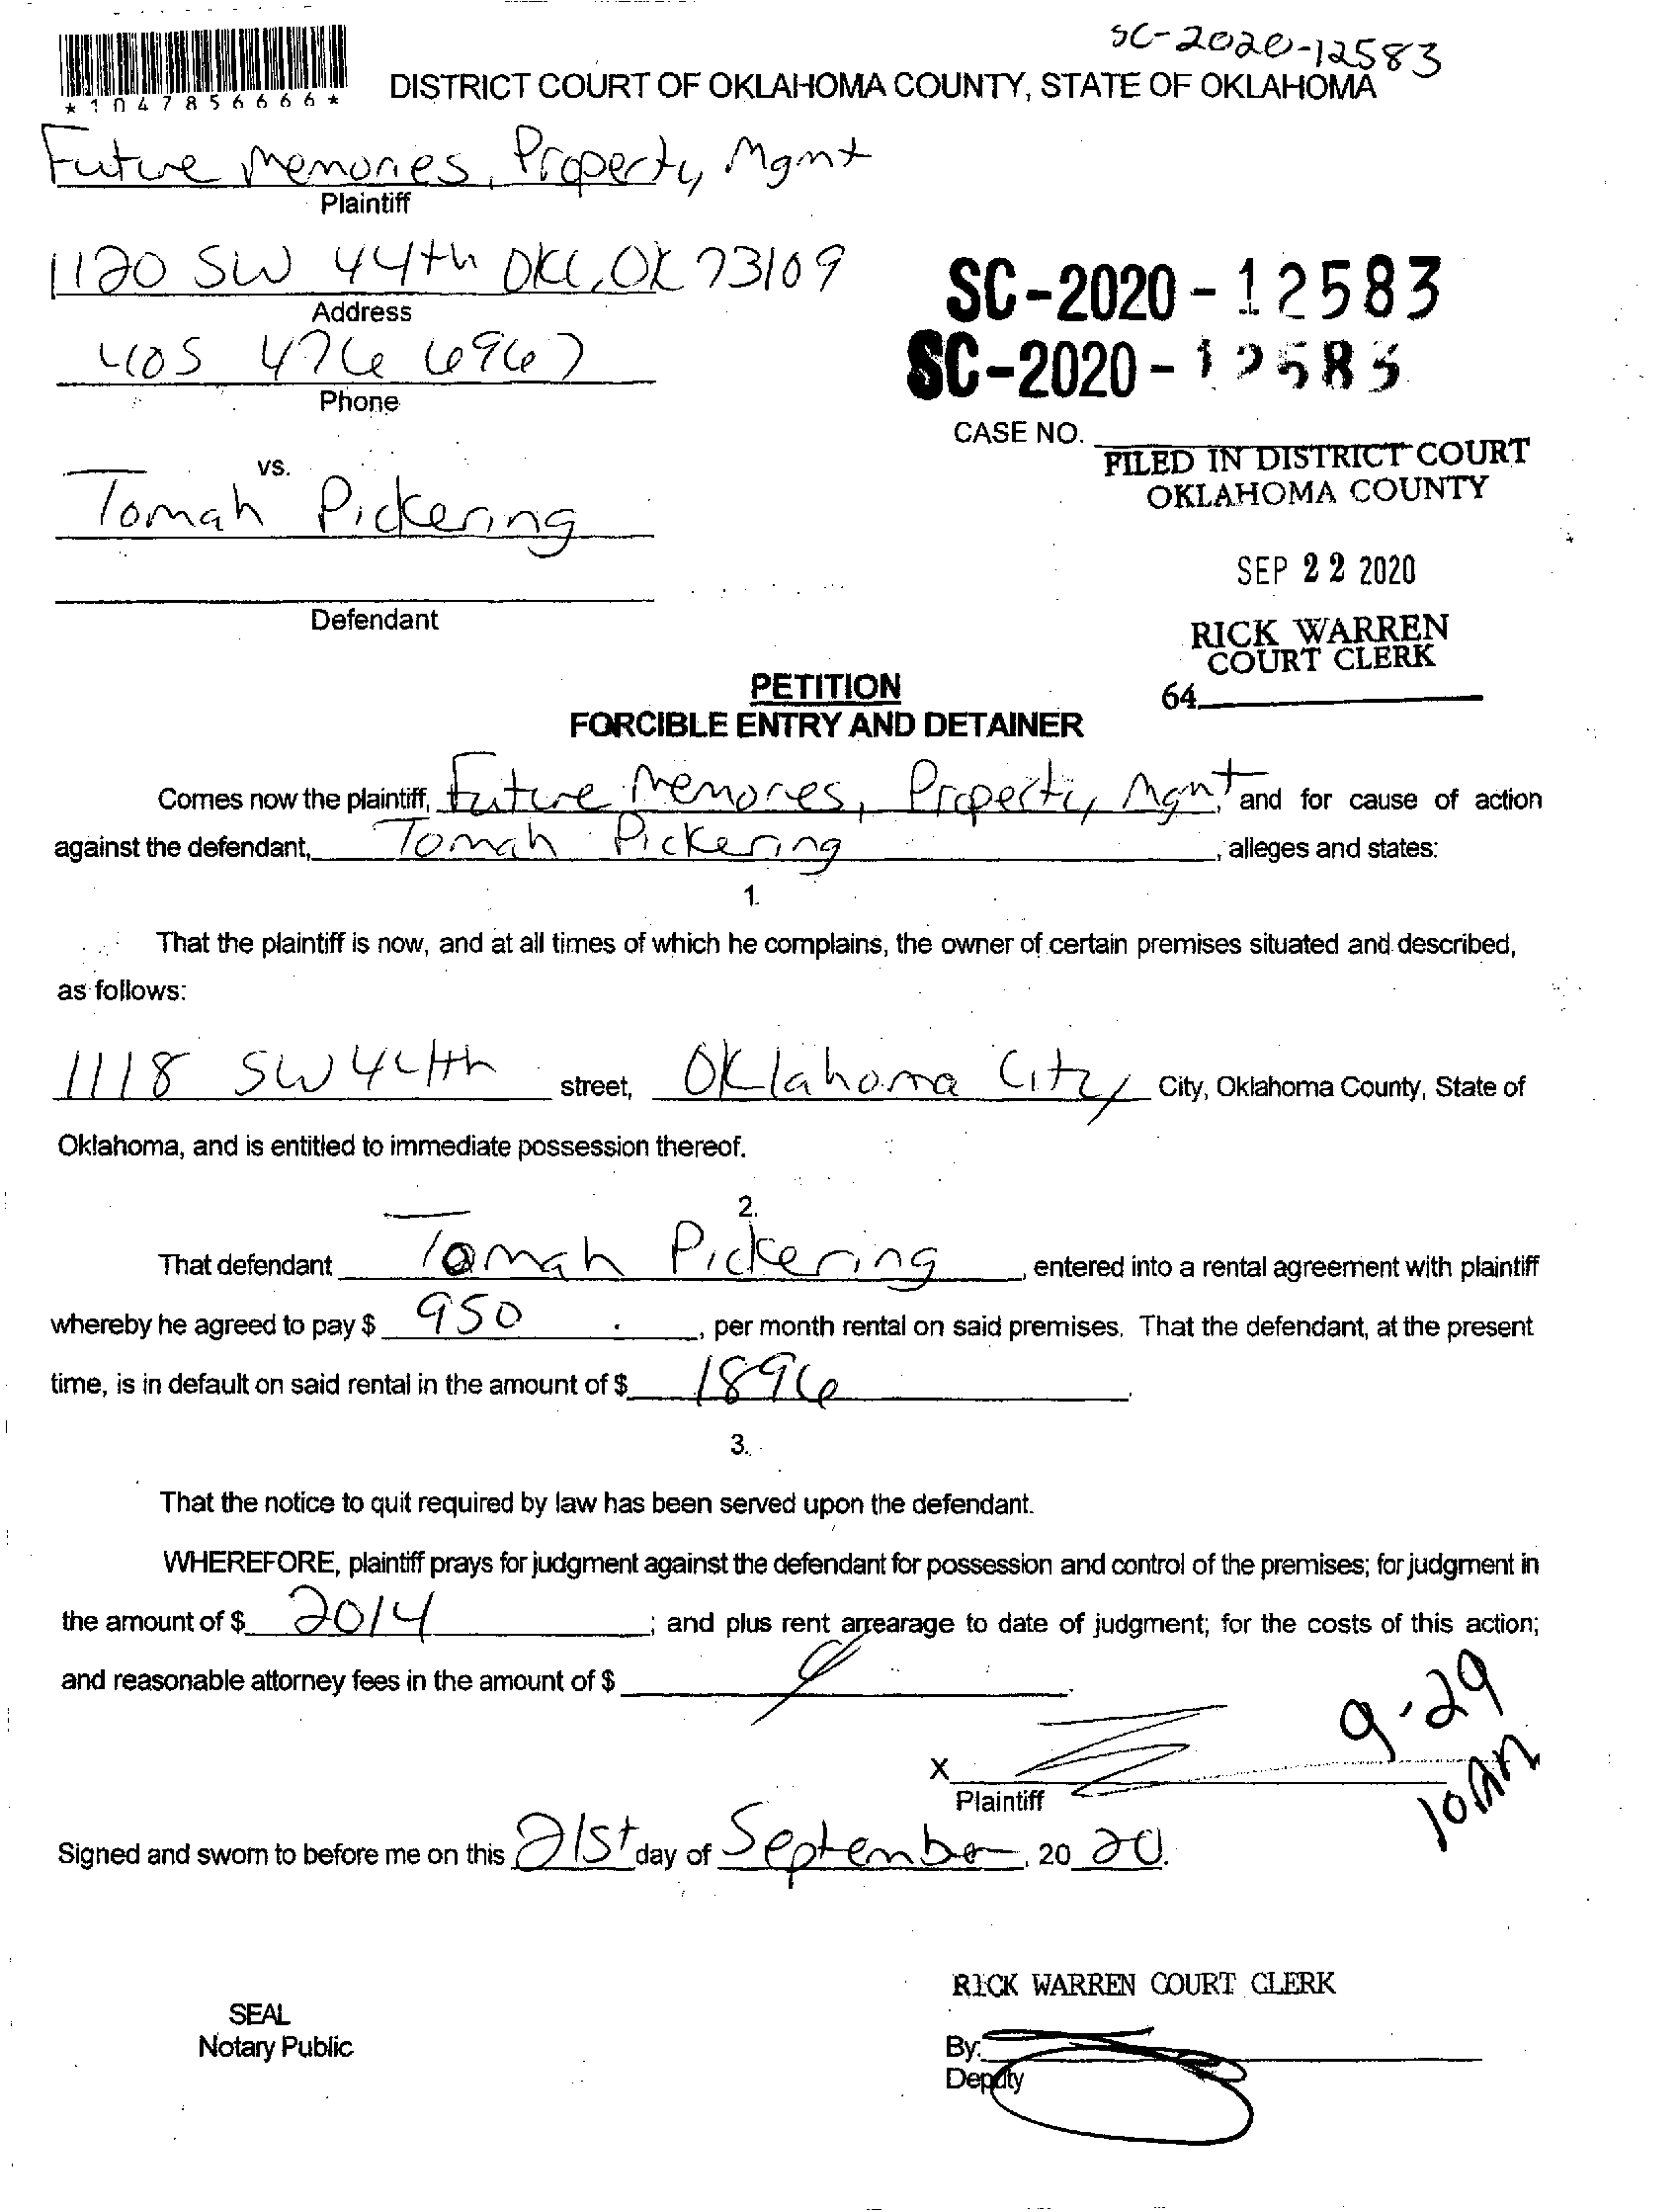 SC-2020-12583
*1047856666*
DISTRICT COURT OF OKLAHOMA COUNTY, STATE OF OKLAHOMA
Future Memories, Property Mgmt
Plaintiff
1120 SW 44th OKC, OK 73109
Address
SC-2020-12583
405 476 6967
SC-2020-12583
Phone
CASE NO.
FILED IN DISTRICT COURT
OKLAHOMA COUNTY
vs.
Tomah Pickering
SEP 22 2020
Defendant
RICK WARREN
COURT CLERK
64
PETITION
FORCIBLE ENTRY AND DETAINER
Comes now the plaintiff, Future Memories, Property Mgnt, and for cause of action
against the defendant, Tomah Pickering, alleges and states:
1.
That the plaintiff is now, and at all times of which he complains, the owner of certain premises situated and described,
as follows:
1118 SW 44th street, Oklahoma City City, Oklahoma County, State of
Oklahoma, and is entitled to immediate possession thereof.
2.
That defendant Tomah Pickering, entered into a rental agreement with plaintiff
whereby he agreed to pay $ 950, per month rental on said premises. That the defendant, at the present
time, is in default on said rental in the amount of $ 1896.
3.
That the notice to quit required by law has been served upon the defendant.
WHEREFORE, plaintiff prays for judgment against the defendant for possession and control of the premises; for judgment in
the amount of $ 2014; and plus rent arrearage to date of judgment; for the costs of this action;
and reasonable attorney fees in the amount of $
9-29
10AM
X
Plaintiff
Signed and sworn to before me on this 21st day of September, 20 20.
RICK WARREN COURT CLERK
SEAL
Notary Public
By:
Deputy